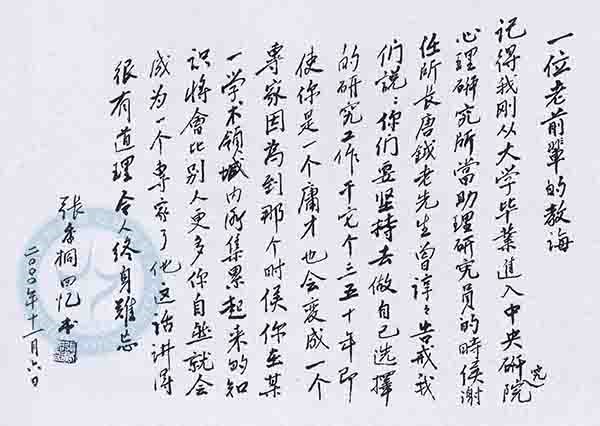 一位老前輩的教诲
記得我刚从大学毕業進入中央研究院
心理研究所當助理研究員的時侯謝
任所長唐鉞老先生曾諄々告戒我
们說：你们要坚持去做自己选擇
的研究工作干它个三五十年即
使你是一个庸才也会变成一个
專家因為到那个时侯你在某
一学术领域内所集累起来的知
识将會比别人更多你自然就会
成为一个專家了他这话讲得
很有道理令人终身难忘
张香桐回忆书
二〇〇〇年十一月六日